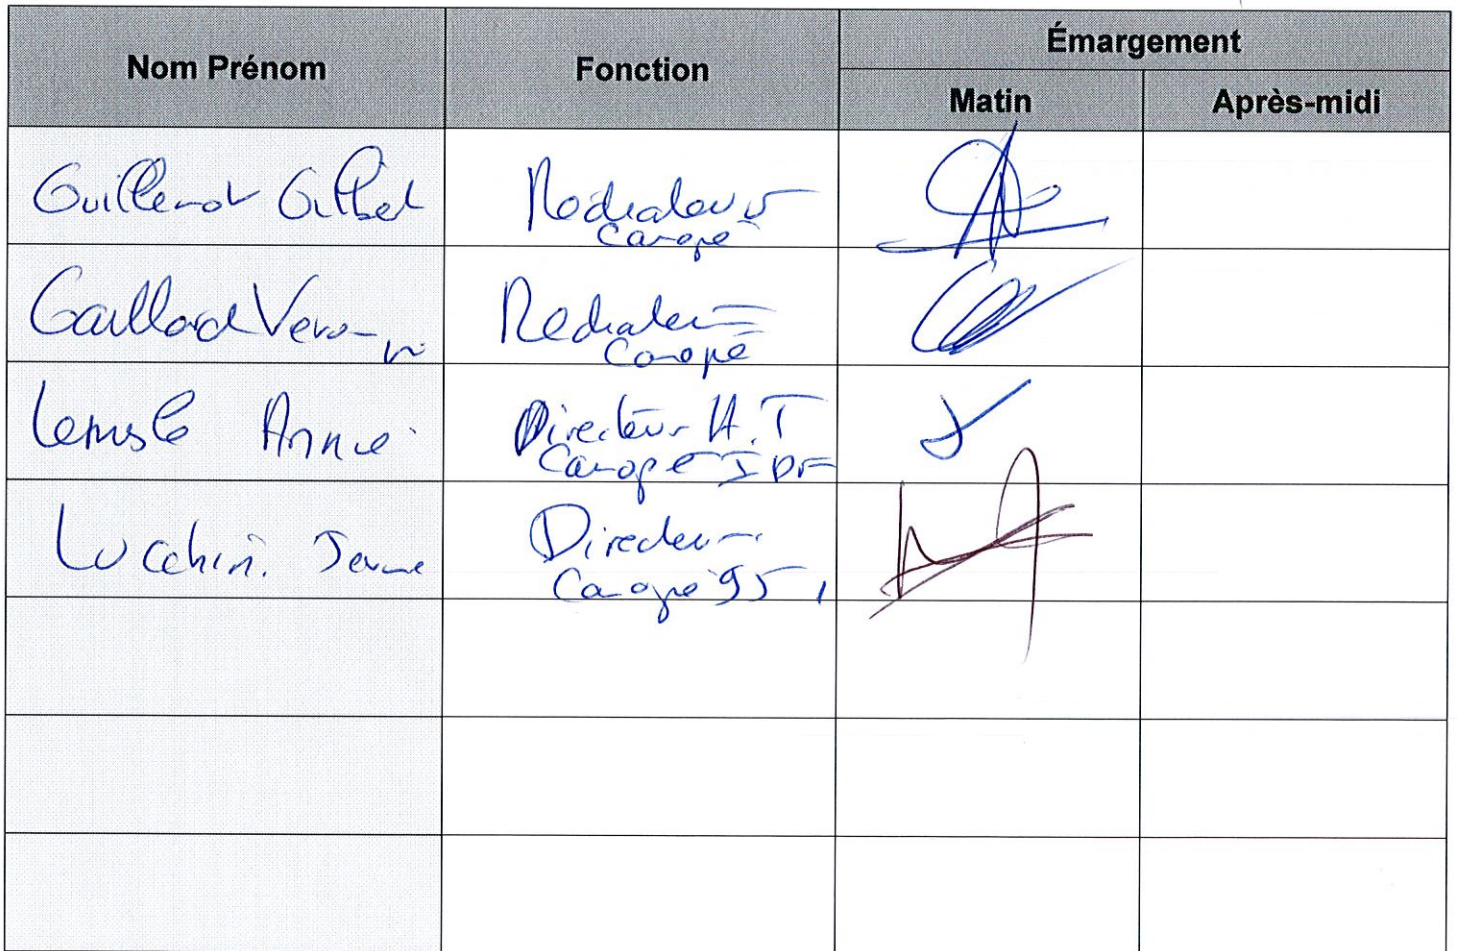 Nom Prénom
Fonction
Émargement
Matin
Après-midi
Guillemot Gilbert
Médiateur
Canopé
Gaillard
Médiateur
Canopé
Annie
Directeur A.T
Canopé IDF
Lucchini
Directeur
Canopé 95